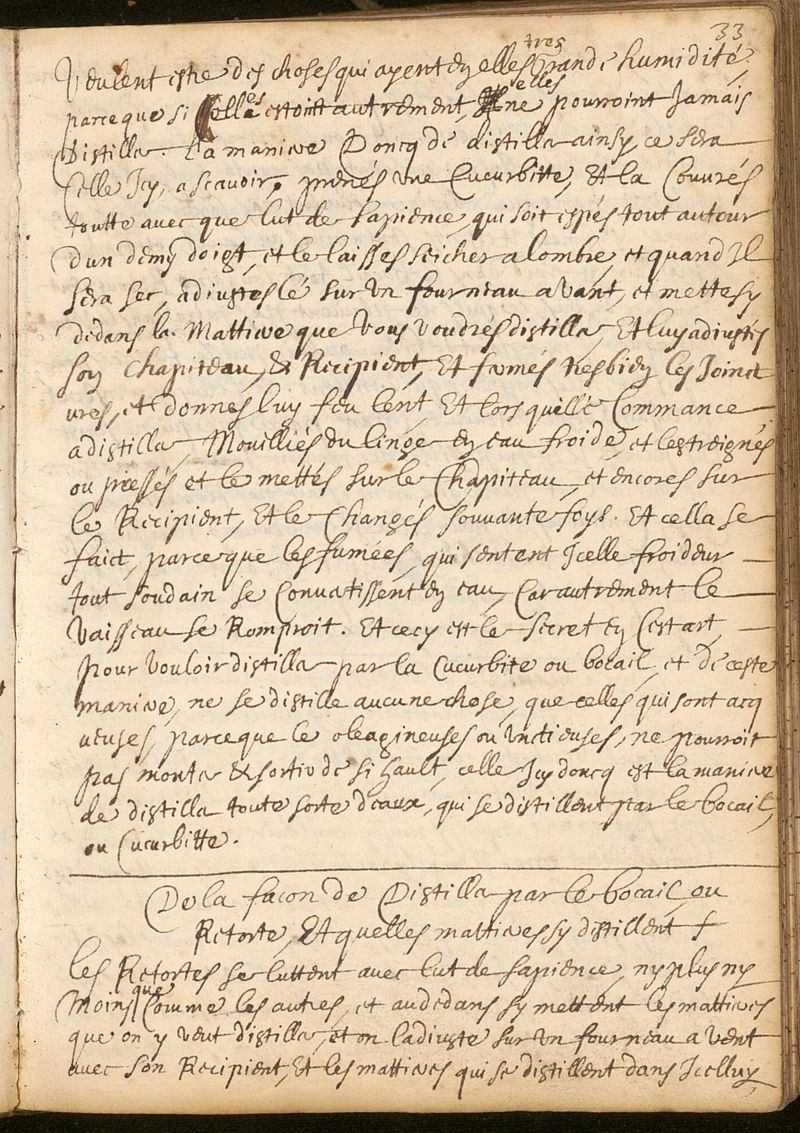 33
Veulent estre des choses qui ayent en elles tres grande humidité,
parce que si elles estoint autrement, elles ne pourroint Jamais
distiller. La maniere Doncq de distiller ainsy, ce sera
Celle Icy, a scavoir, prenés une Cucurbitte, Et la Couvrés
toutte avecque lut de sapience, qui soit espés tout autour
dun demy doigt, et le laisses seicher alombre, et quand Il
sera sec, adiustes lé sur un fourneau a vant, et mettes y
dedans la Mattiere que vous voudrés distiller, Et luy adiustés
son Chapiteau, & Recipient, Et fermés tresbien les Joinct
ures, et donnes luy feu lent, Et lorsquelle Commance
a distiller, Mouilliés du linge en eau froide, et lestreignés
ou pressés et le mettés sur le Chapiteau, et encores sur
le Recipient, Et le Changés souvante foys. Et cella se
faict, parce que les fumées, qui sentent Icelle froideur
tout soudain se Convertissent en eau, Car autrement le
Vaisseau se Romproit. Et cecy est le secret en Cest art,
pour vouloir distiller par la Cucurbite ou bocail, et de ceste
maniere, ne se distille aucune chose, que celles qui sont acq
ueuses, parce que le oleagineuses ou unctieuses, ne pourroit
pas monter & sortir de si hault, celle Icy doncq est la maniere
de distiller toute sorte deaux, qui se distillent par le bocail,
ou Cucurbitte.
De la facon de Distiller par le bocail ou
Retorte, Et quelles mattieres sy distillent
les Retortes se luttent avec lut de sapience, ny plus ny
Moins que Comme les autres, et au dedans sy mettent les mattieres
que on y veut distiller, et on ladiuste sur un fourneau a vent
avec son Recipient, Et les mattieres qui se distillent dans Icelluy,